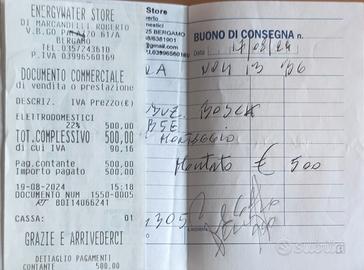 ENERGYWATER STORE
DI MARGANELLI ROBERTO
V.B.GO PALAZZO 61/A
BERGAMO
TEL.035/243610
P.IVA 03996560169
DOCUMENTO COMMERCIALE
di vendita o prestazione
DESCRIZ. IVA Prezzo(€)
ELETTRODOMESTICI
22% 500,00
TOT.COMPLESSIVO 500,00
di cui IVA 90,16
Pag.contante 500,00
Importo pagato 500,00
19-08-2024 15:18
DOCUMENTO NUM 1550-0005
RT 80I14066241
CASSA: 01
GRAZIE E ARRIVEDERCI
DETTAGLIO PAGAMENTI
CONTANTE 500,00
Store
25 BERGAMO
@gmail.com
BUONO DI CONSEGNA n.
Data
BOSCH
MONTAGGIO
Montato € 500
Subito.it